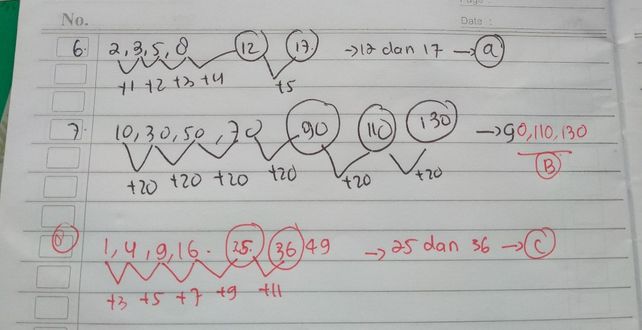 No.
Page :
Date :
6. 2, 3, 5, 8 12 17. → 12 dan 17 → a
+1 +2 +3 +4 +5
7. 10, 30, 50, 70 90 110 130 → 90, 110, 130
+20 +20 +20 +20 +20 +20 B
8 1, 4, 9, 16. 25. 36 49 → 25 dan 36 → C
+3 +5 +7 +9 +11